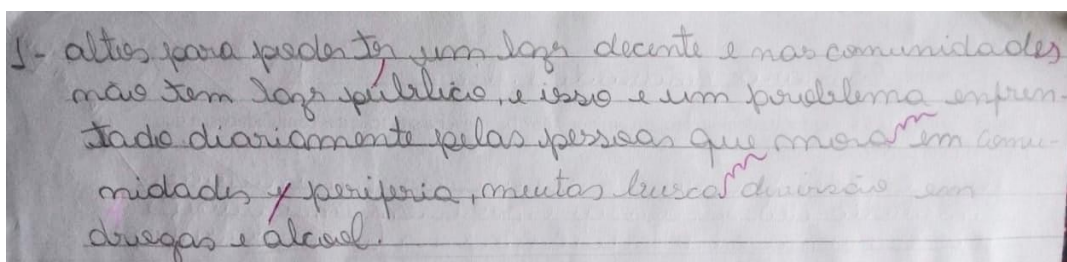 1- altos para poder ter um lazer decente e nas comunidades
não tem lazer público, e isso e um problema enfren-
tado diariamente pelas pessoas que moram em comu-
nidades e periferia, muitas buscam diversão em
drogas e álcool.